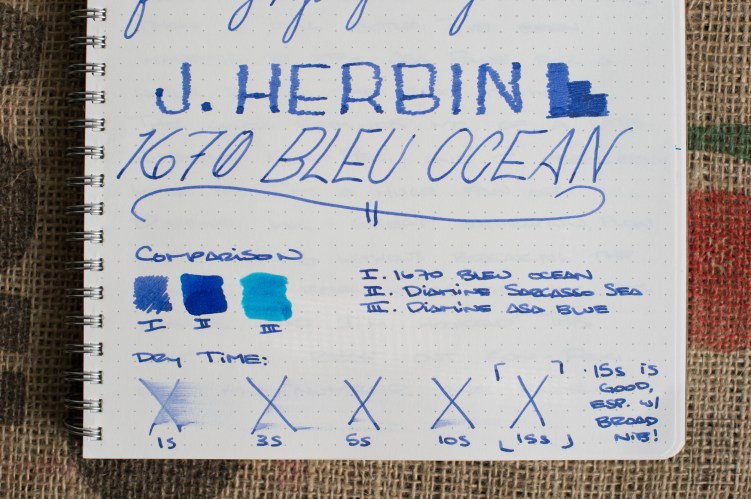 J. HERBIN
1670 BLEU OCEAN
COMPARISON
I. 1670 BLEU OCEAN
II. DIAMINE SARGASSO SEA
III. DIAMINE ASA BLUE
I II III
DRY TIME:
1s 3s 5s 10s 15s
· 15s IS
GOOD,
ESP. w/
BROAD
NIB!